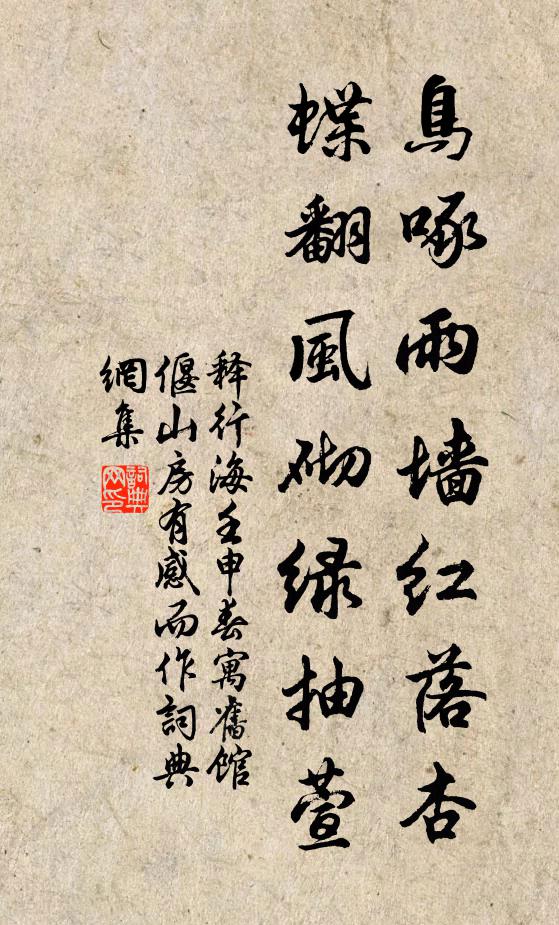 鳥啄雨墙红落杏
蝶翻風砌绿抽萱
释行海壬申春寓舊馆
偃山房有感而作詞典
網集
詞典
网印